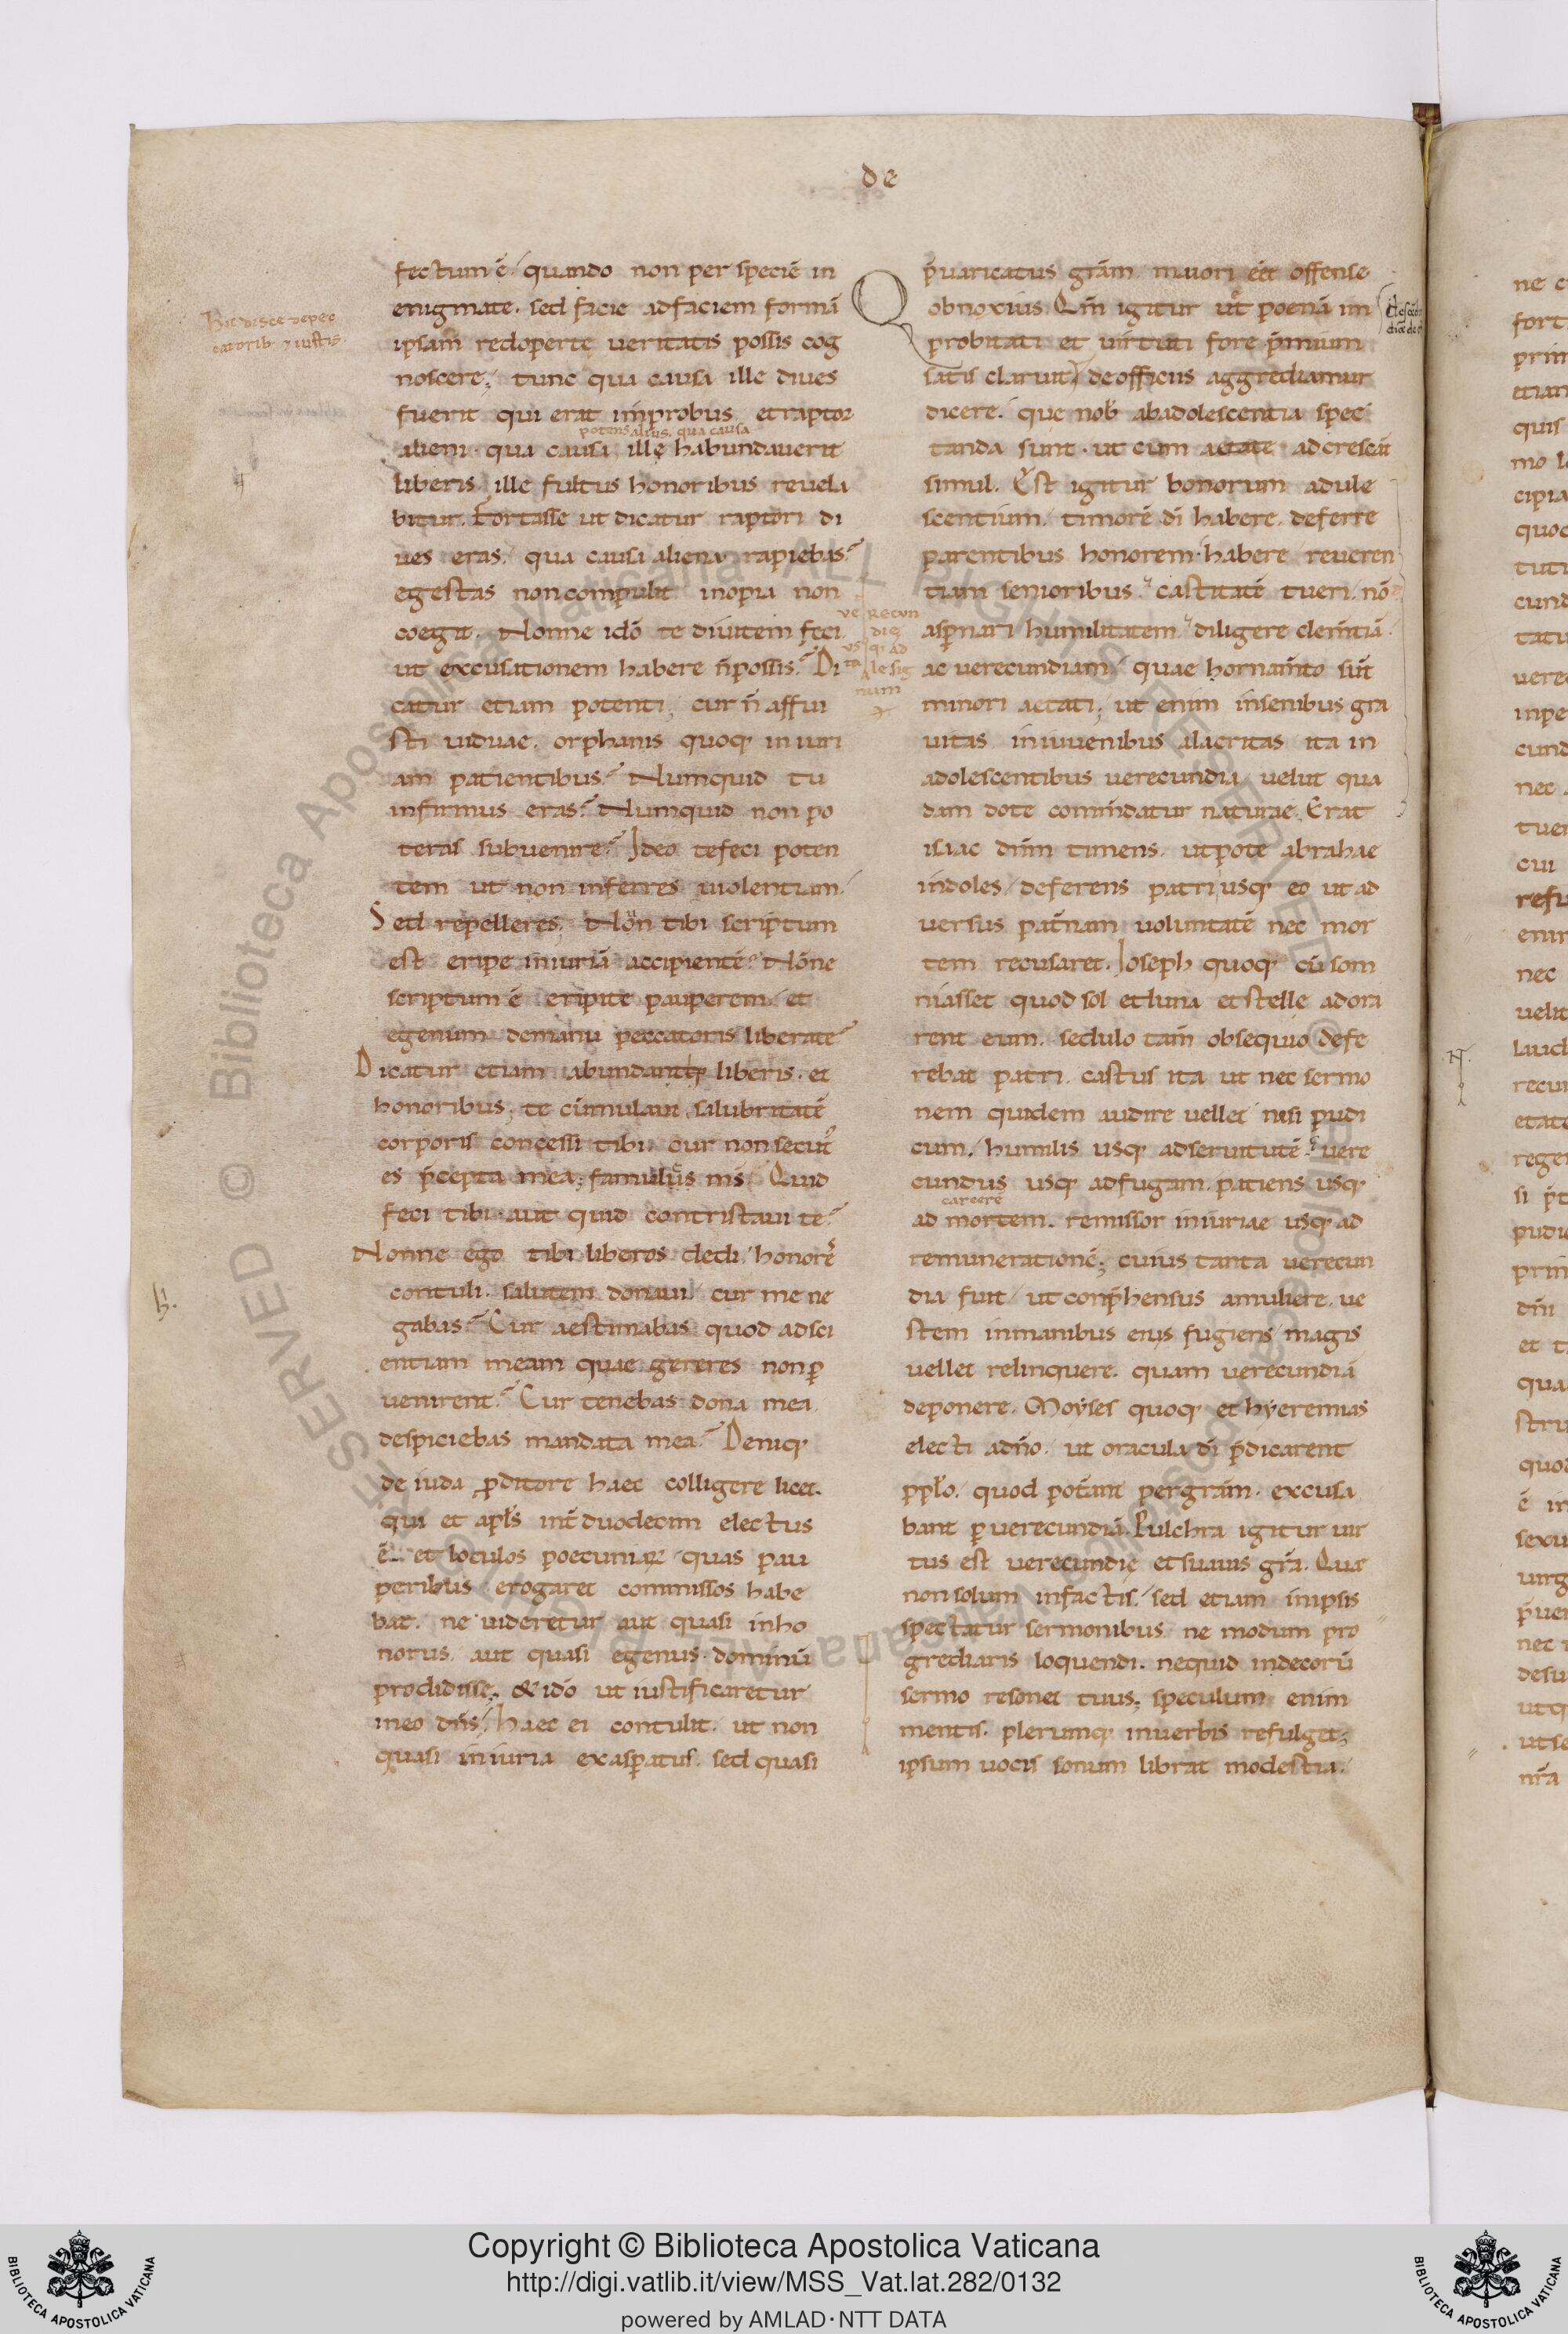 de
fectum ē. quando non per speciē in
enigmate. sed facie adfaciem formā
ipsam redoperte ueritatis possis cog
noscere; tunc qua causa ille diues
fuerit qui erat improbus et raptor
potens alius. qua causa
alieni. qua causa ille habundauerit
liberis. ille fultus honoribus reuela
bitur. Fortasse ut dicatur raptori di
ues eras. qua causa aliena rapiebas?
egestas non compulit inopia non
coegit. Nonne idō te diuitem feci
ut excusationem habere ñ possis? Di
catur etiam potenti, cur ñ affui
sti uiduae. orphanis quoq; in iuri
am patientibus? Numquid tu
infirmus eras? Numquid non po
teras subuenire? Ideo te feci poten
tem ut non inferres uiolentiam.
Sed repelleres; Non tibi scriptum
est eripe iniuriā accipientē? Nōne
scriptum ē eripite pauperem. et
egenum demanu peccatoris liberate?
Dicatur etiam abundantiq; liberis. et
honoribus; te cūmulaui salubritatē
corporis concessi tibi. cur non secut'
es p̄cepta mea; famulus ms̄ Quid
feci tibi. aut quid contristaui te?
Nonne ego tibi liberos dedi. honores
contuli. salutem donaui. cur me ne
gabas? Cur aestimabas quod ad sci
entiam meam quae gereres non p
uenirent? Cur tenebas dona mea
despiciebas mandata mea? Deniq;
de iuda pditore haec colligere licet.
qui et apls̄ int̄ duodecim electus
ē. et loculos poecuniarꝝ quas pau
peribus erogaret commissos habe
bat. ne uideretur aut quasi inho
norus. aut quasi egenus. dominū
prodidisse. & idō ut iustificaretur
in eo dn̄s. haec ei contulit. ut non
quasi iniuria exaspatus. sed quasi
p̄uaricatus grām. maiori eēt offense
obnoxius. Qm̄ igitur ut poenā im
probitati et uirtuti fore p̄mium
satis claruit) de officiis aggrediamur
dicere. que nob abadolescentia speci
tanda sunt. ut cum aetate adcrescāt
simul. Est igitur bonorum adule
scentium. timorē dī habere. deferre
parentibus honorem. habere reueren
tiam senioribus. castitatē tueri. nō
aspnari humilitatem. diligere clem̄tiā.
ac uerecundiam. quae hornam̄to sūt
minori aetati; ut enim insenibus gra
uitas. iniuuenibus alacritas ita in
adolescentibus uerecundia uelut qua
dam dote com̄mdatur naturae. Erat
isaac dn̄m timens. utpote abrahae
indoles. deferens patri usq; eo ut ad
uersus pat̄nam uoluntatē nec mor
tem recusaret. Ioseph quoq; cū som
niasset quod sol et luna et stelle adora
rent eum. sedulo tam̄ obsequio defe
rebat patri. castus ita ut nec sermo
nem quidem audire uellet nisi pudi
cum. humilis usq; adseruitutē. uere
cundus usq; adfugam. patiens usq;
carcerē
ad mortem. remissor iniuriae usq; ad
remunerationē; cuius tanta uerecun
dia fuit ut conp̄hensus amuliere. ue
stem inmanibus eius fugiens magis
uellet relinquere. quam uerecundiā
deponere. Moyses quoq; et hyeremias
electi ad̄no. ut oracula dī p̄dicarent
pplo. quod pot̄ant per grām. excusa
bant p uerecundiā. Pulchra igitur uir
tus est uerecundie et suauis grā. Quae
non solum infactis. sed etiam inipsis
spectatur sermonibus ne modum pro
grediaris loquendi. nequid indecorū
sermo resonet tuus; speculum enim
mentis. plerumq; inuerbis refulget;
ipsum uocis sonum librat modestia.
Hic disce de pec
catorib. 7 iustis.
h.
Copyright © Biblioteca Apostolica Vaticana
http://digi.vatlib.it/view/MSS_Vat.lat.282/0132
powered by AMLAD·NTT DATA
BIBLIOTECA APOSTOLICA VATICANA
BIBLIOTECA APOSTOLICA VATICANA